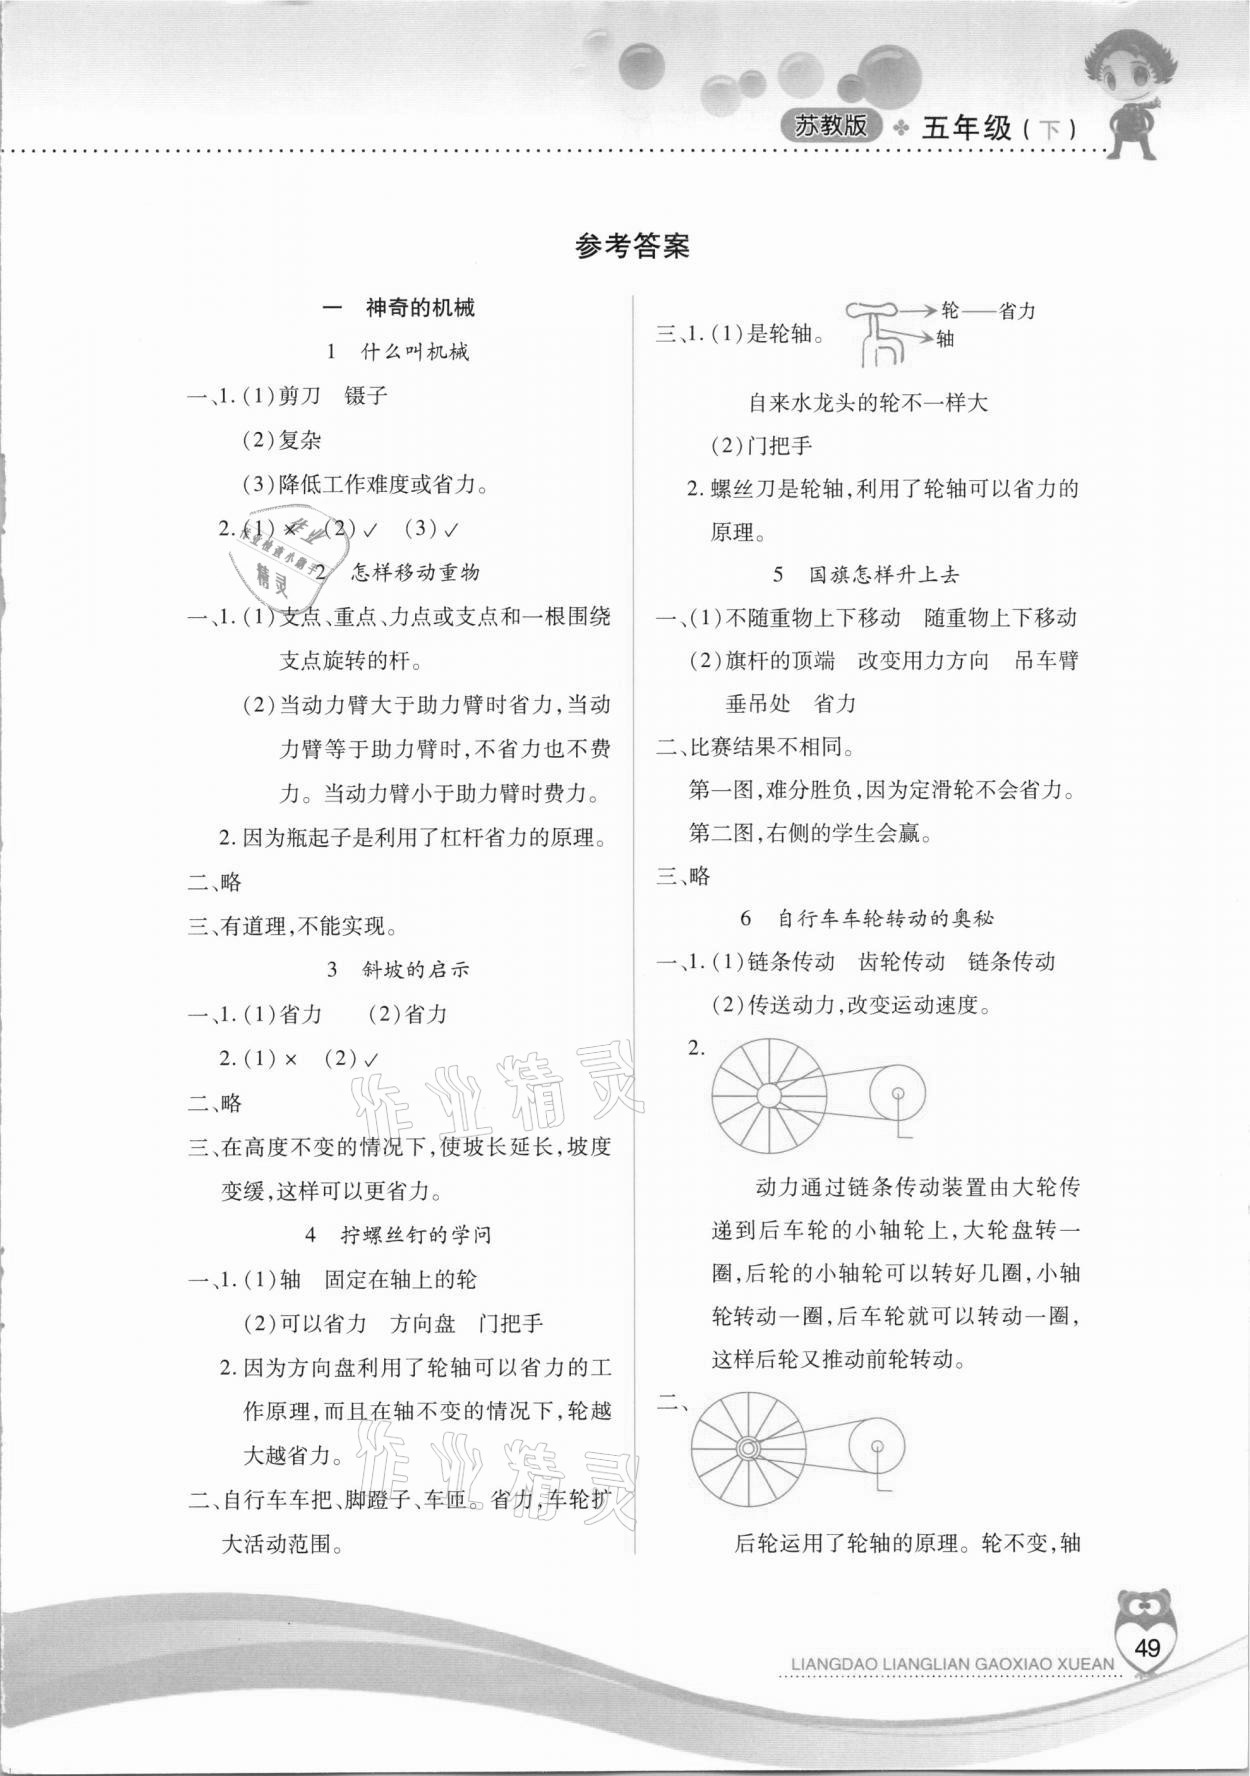 苏教版 五年级(下)
参考答案
一 神奇的机械
1 什么叫机械
一、1.(1)剪刀 镊子
(2)复杂
(3)降低工作难度或省力。
2.(1)× (2)✓ (3)✓
2 怎样移动重物
一、1.(1)支点、重点、力点或支点和一根围绕
支点旋转的杆。
(2)当动力臂大于助力臂时省力,当动
力臂等于助力臂时,不省力也不费
力。当动力臂小于助力臂时费力。
2.因为瓶起子是利用了杠杆省力的原理。
二、略
三、有道理,不能实现。
3 斜坡的启示
一、1.(1)省力 (2)省力
2.(1)× (2)✓
二、略
三、在高度不变的情况下,使坡长延长,坡度
变缓,这样可以更省力。
4 拧螺丝钉的学问
一、1.(1)轴 固定在轴上的轮
(2)可以省力 方向盘 门把手
2.因为方向盘利用了轮轴可以省力的工
作原理,而且在轴不变的情况下,轮越
大越省力。
二、自行车车把、脚蹬子、车匝。省力,车轮扩
大活动范围。
三、1.(1)是轮轴。
轮——省力
轴
自来水龙头的轮不一样大
(2)门把手
2.螺丝刀是轮轴,利用了轮轴可以省力的
原理。
5 国旗怎样升上去
一、(1)不随重物上下移动 随重物上下移动
(2)旗杆的顶端 改变用力方向 吊车臂
垂吊处 省力
二、比赛结果不相同。
第一图,难分胜负,因为定滑轮不会省力。
第二图,右侧的学生会赢。
三、略
6 自行车车轮转动的奥秘
一、1.(1)链条传动 齿轮传动 链条传动
(2)传送动力,改变运动速度。
2.
动力通过链条传动装置由大轮传
递到后车轮的小轴轮上,大轮盘转一
圈,后轮的小轴轮可以转好几圈,小轴
轮转动一圈,后车轮就可以转动一圈,
这样后轮又推动前轮转动。
二、
后轮运用了轮轴的原理。轮不变,轴
LIANGDAO LIANGLIAN GAOXIAO XUEAN
49
作业
作业检查小助手
精灵
作业精灵
作业精灵